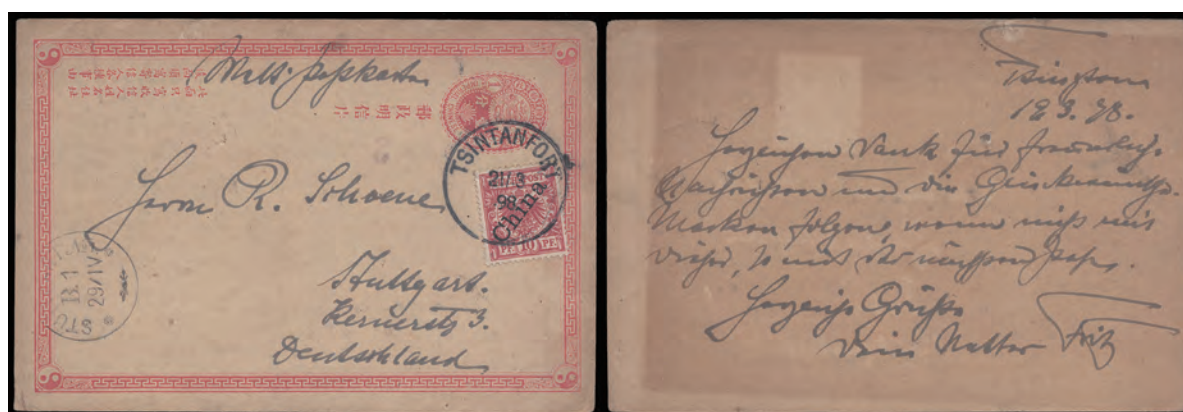 Welt-Postkarte
郵政明信片
TSINTANFORT
21/3
98
China
10
Herrn R. Schoene
Stuttgart.
Kernerstr 3.
Deutschland
STU
B.1
29/IV
Tsingtau
12.3.98.
Herzlichen Dank für freundliche
Nachrichten und die Glückwünsche.
Marken folgen, wenn nicht mit
dieser, so mit der nächsten Post.
Herzliche Grüße
Dein Vetter Fritz